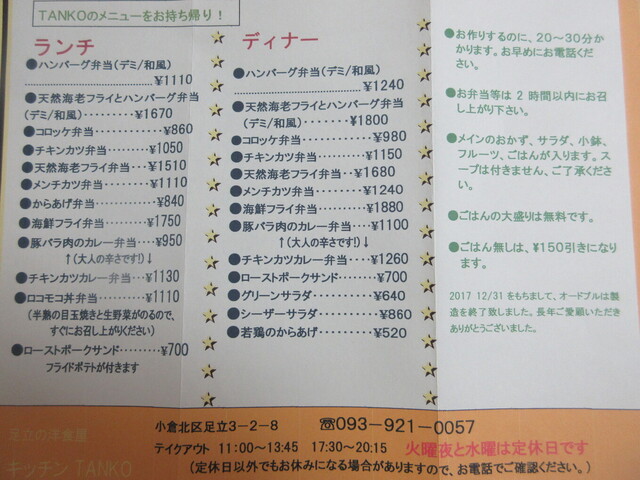 TANKOのメニューをお持ち帰り！
ランチ
●ハンバーグ弁当(デミ/和風)
..........................................¥1110
●天然海老フライとハンバーグ弁当
(デミ/和風)・・・・・・・・¥1670
●コロッケ弁当・・・・・・・・¥860
●チキンカツ弁当・・・・¥1050
●天然海老フライ弁当・・¥1510
●メンチカツ弁当・・・・¥1110
●からあげ弁当・・・・・・¥840
●海鮮フライ弁当・・・・¥1750
●豚バラ肉のカレー弁当・・・¥950
↑(大人の辛さです!)↓
●チキンカツカレー弁当・・・¥1130
●ロコモコ丼弁当・・・・¥1110
(半熟の目玉焼きと生野菜がのるので、
すぐにお召し上がりください)
●ローストポークサンド・・・・¥700
フライドポテトが付きます
ディナー
●ハンバーグ弁当(デミ/和風)
..........................................¥1240
●天然海老フライとハンバーグ弁当
(デミ/和風)・・・・・・・¥1800
●コロッケ弁当・・・・・・・¥980
●チキンカツ弁当・・・・¥1150
●天然海老フライ弁当・・¥1680
●メンチカツ弁当・・・・¥1240
●海鮮フライ弁当・・・・¥1880
●豚バラ肉のカレー弁当・・・¥1100
↑(大人の辛さです!)↓
●チキンカツカレー弁当・・・・¥1260
●ローストポークサンド・・・・¥700
●グリーンサラダ・・・・・・¥640
●シーザーサラダ・・・・・・¥860
●若鶏のからあげ・・・・・¥520
●お作りするのに、20～30分か
かります。お早めにお電話くだ
さい。
●お弁当等は 2 時間以内にお召
し上がり下さい。
●メインのおかず、サラダ、小鉢、
フルーツ、ごはんが入ります。スー
プは付きません、ご了承くださ
い。
●ごはんの大盛りは無料です。
●ごはん無しは、¥150引きになり
ます。
2017 12/31 をもちまして、オードブルは製
造を終了致しました。長年ご愛顧いただき
ありがとうございました。
足立の洋食屋
キッチン TANKO
小倉北区足立3－2－8 ☎093-921-0057
テイクアウト 11:00～13:45 17:30～20:15 火曜夜と水曜は定休日です
(定休日以外でもお休みになる場合がありますので、お電話でご確認ください。)